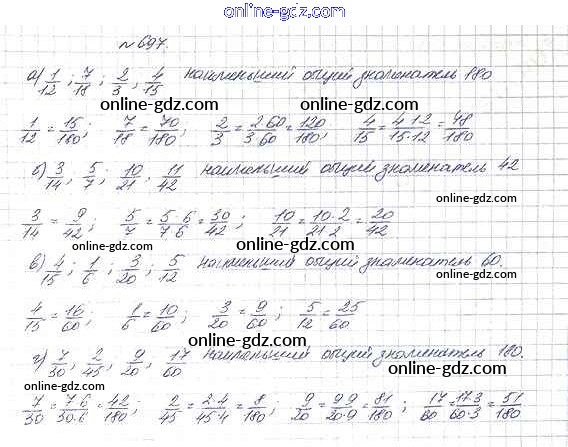 online-gdz.com
№697.
а) 1/12; 7/18; 2/3; 4/15 наименьший общий знаменатель 180
online-gdz.com online-gdz.com
1/12 = 15/180; 7/18 = 70/180; 2/3 = 2·60/3·60 = 120/180; 4/15 = 4·12/15·12 = 48/180
online-gdz.com
б) 3/14, 5/7; 10/21, 11/42 наименьший общий знаменатель 42
online-gdz.com
3/14 = 9/42; 5/7 = 5·6/7·6 = 30/42; 10/21 = 10·2/21·2 = 20/42
online-gdz.com
в) 4/15; 1/6; 3/20; 5/12 наименьший общий знаменатель 60.
online-gdz.com
4/15 = 16/60; 1/6 = 10/60; 3/20 = 9/60; 5/12 = 25/60
online-gdz.com
г) 7/30, 2/45; 9/20, 17/60 наименьший общий знаменатель 180.
online-gdz.com online-gdz.com
7/30 = 7·6/30·6 = 42/180; 2/45 = 2·4/45·4 = 8/180; 9/20 = 9·9/20·9 = 81/180; 17/60 = 17·3/60·3 = 51/180
online-gdz.com